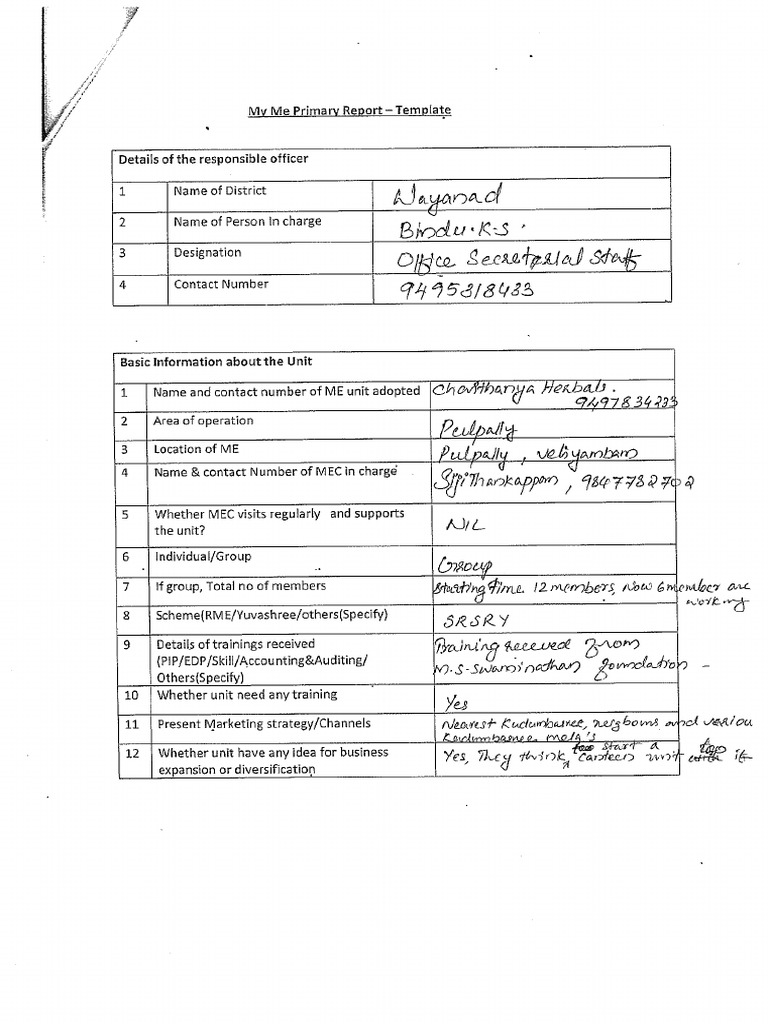 My Me Primary Report – Template
Details of the responsible officer
1 Name of District Wayanad
2 Name of Person In charge Bindu.K.S.
3 Designation Office Secretarial Staff
4 Contact Number 9495318433
Basic Information about the Unit
1 Name and contact number of ME unit adopted Chaithanya Herbals.
9497834233
2 Area of operation Pulpally
3 Location of ME Pulpally, Veliyambam
4 Name & contact Number of MEC in charge Siji Thankappan, 9847782702
5 Whether MEC visits regularly and supports
the unit? NIL
6 Individual/Group Group
7 If group, Total no of members Starting Time 12 members, Now 6 member are
working
8 Scheme(RME/Yuvashree/others(Specify) SRSRY
9 Details of trainings received Training received from
(PIP/EDP/Skill/Accounting&Auditing/ M.S-Swaminathan foundation -
Others(Specify)
10 Whether unit need any training Yes
11 Present Marketing strategy/Channels Nearest Kudumbasree, neigboms and variou
Kudumbasree mela's
12 Whether unit have any idea for business Yes, They think start a canteen unit it
expansion or diversification